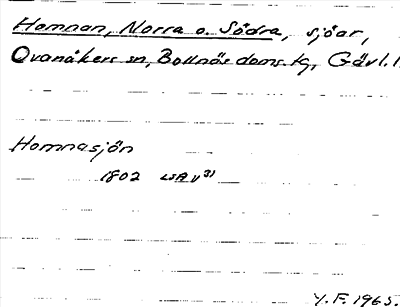 Homnan, Norra o. Södra, sjöar,
Ovanåkers sn, Bollnäs doms.kg, Gävl.l
Homnasjön
1802 LSA V 31
Y.F. 1965.